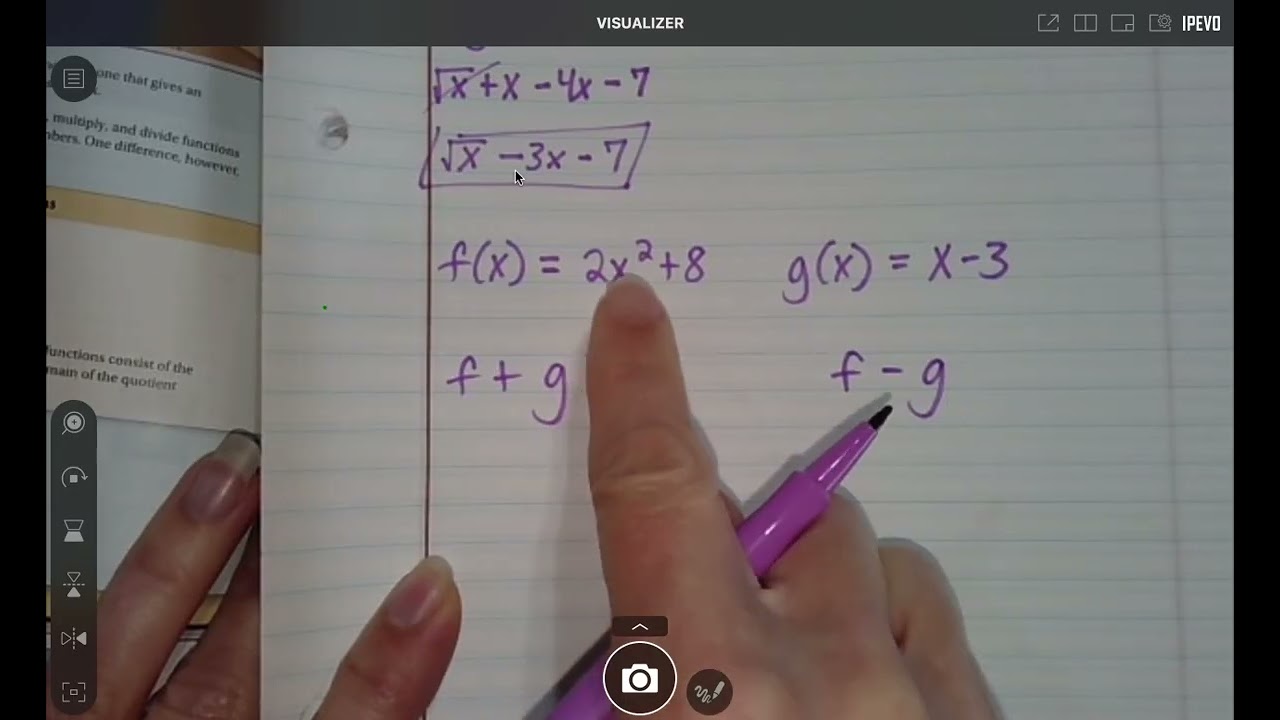 VISUALIZER
IPEVO
one that gives an
, multiply, and divide functions
bers. One difference, however,
functions consist of the
main of the quotient
√x + x - 4x - 7
√x - 3x - 7
f(x) = 2x²+8 g(x) = x-3
f + g f - g